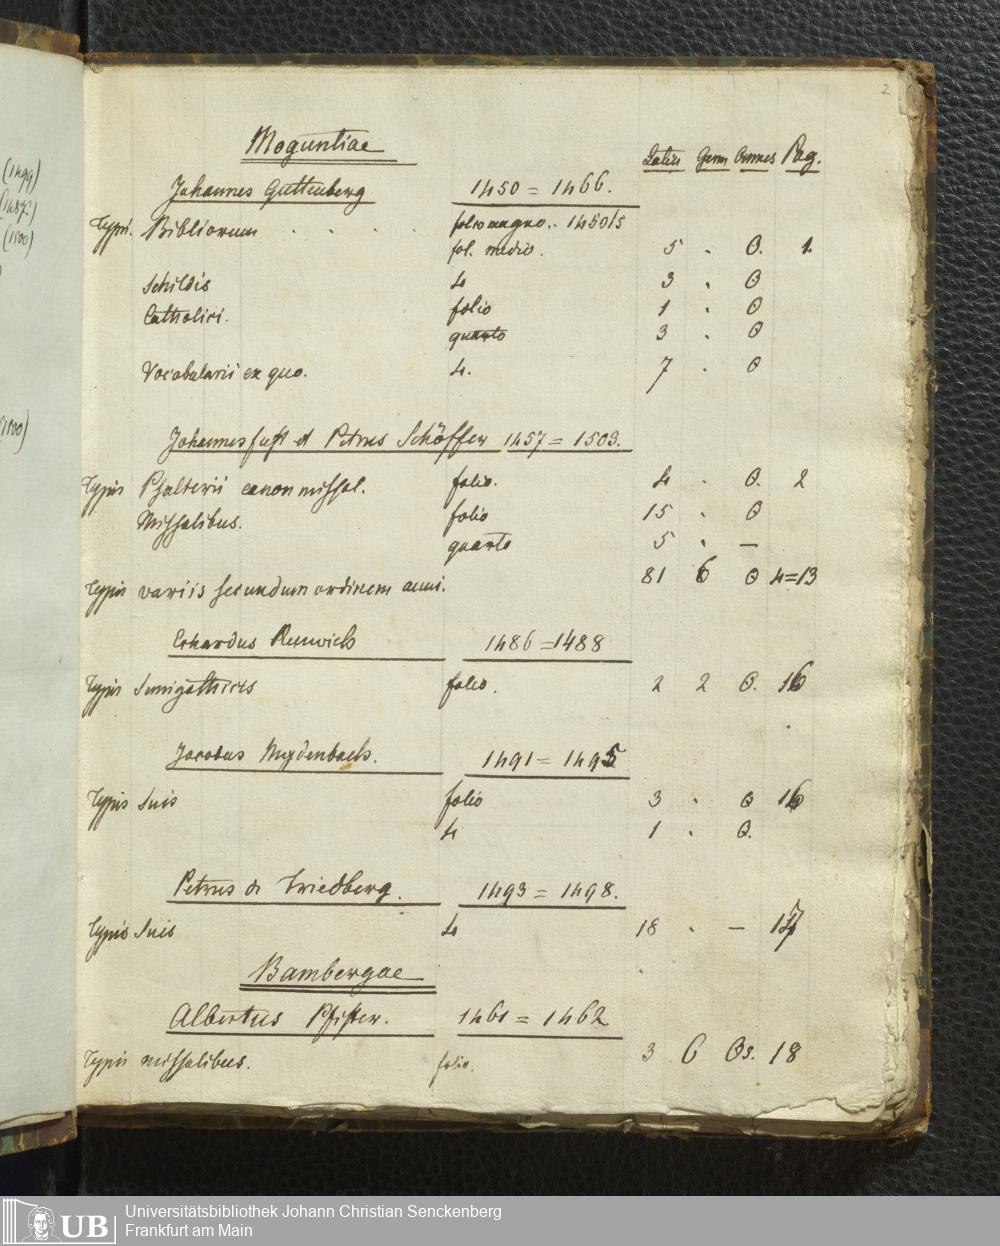 2
(1499)
(1487)
(1500)
(1500)
Moguntiae
Latin Germ Omnes Pag.
Johannes Guttenberg 1450 = 1466.
Typis. Bibliorum . . . . folio magno. . 1450/5
fol. medio. 5 . O. 1.
Schildis 4 3 . O
Catholici. folio 1 . O
quarto 3 . O
Vocabularii ex quo. 4. 7 . O
Johannes fust et Petrus Schöffer 1457 = 1503.
Typis Psalterii canon missal. folio. 4 . O. 2
Missalibus. folio 15 . O
quarto 5 . —
Typis variis secundum ordinem anni. 81 6 O 4=13
Erhardus Reuwich 1486 = 1488
Typis Semigothicis folio. 2 2 O. 16
Jacobus Meydenbach. 1491 = 1495
Typis suis folio 3 . O 16
4 1 . O.
Petrus de Friedberg. 1493 = 1498.
Typis suis 4 18 . — 17
Bambergae
Albertus Pfister. 1461 = 1462
Typis missalibus. folio. 3 6 18
UB
Universitätsbibliothek Johann Christian Senckenberg
Frankfurt am Main